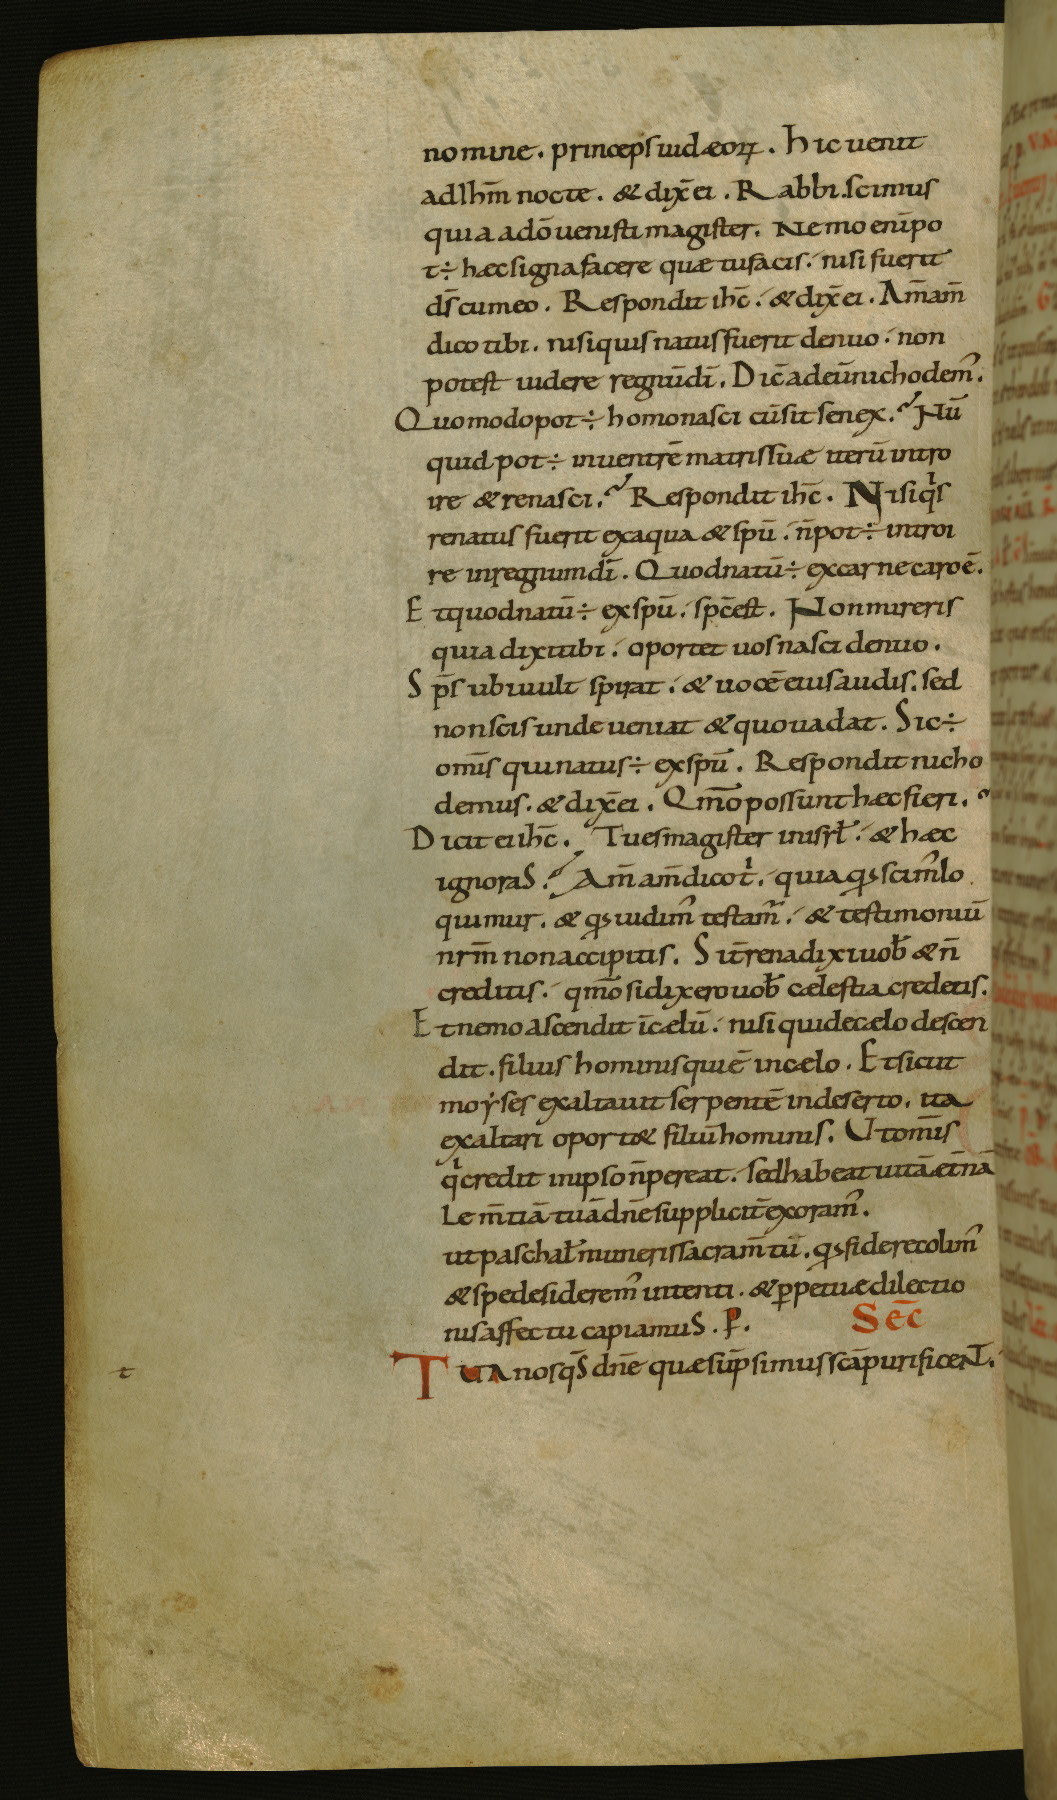 nomine. princeps iudæoꝝ. hic uenit
ad Ihm̄ nocte. & dix̄ ei. Rabbi. scimus
quia a dō uenisti magister. Nemo enī po
t÷ hæc signa facere quæ tu facis. nisi fuerit
ds̄ cum eo. Respondit ihc̄. & dix̄ ei. Am̄ am̄
dico tibi. nisi quis natus fuerit denuo. non
potest uidere regnū dī. Dic̄ ad eū nichodem᷒.
Quomodo pot÷ homo nasci cū sit senex.? Nū
quid pot÷ in uentrē matris suæ iterū intro
ire & renasci.? Respondit ihc̄. Nisi qͥs
renatus fuerit ex aqua & spū. n̄ pot÷ introi
re in regnum dī. Quod natū÷ ex carne caro ē.
Et quod natū÷ ex spū. spc̄ est. Non mireris
quia dixi tibi. oportet uos nasci denuo.
Sps̄ ubi uult spirat. & uocē eius audis. sed
non scis unde ueniat & quo uadat. Sic÷
omīs qui natus÷ ex spū. Respondit nicho
demus. & dix̄ ei. Qm̄o possunt hæc fieri.?
Dicit ei ihc̄. Tu es magister in isrł. & hæc
ignoraS.? Am̄ am̄ dico tͥ. quia qꝫ scim᷒ lo
quimur. & qꝫ uidim᷒ testam᷒. & testimoniū
nrm̄ non accipitis. Si t̄rena dixi uob̄ & n̄
creditis. qm̄o si dixero uob̄ cælestia credetis.
Et nemo ascendit ī cælū. nisi qui de cælo descen
dit. filius hominis qui ē in cælo. Et sicut
moẏses exaltauit serpentē in deserto. ita
exaltari oport& filiū hominis. Ut omīs
qͥ credit in ipso n̄ pereat. sed habeat uitā æt̄nā
Lem̄tiā tuā dn̄e suppliciт̄ exoram᷒.
ut paschał muneris sacram̄tū. qꝫ fide recolim᷒
& spe desiderem᷒ intenti. & ꝑpetuæ dilectio
nis affectu capiamuS. P̄. Sec̄
t Tua nos qs̄ dn̄e quæ sūpsimus sc̄a purificenT.